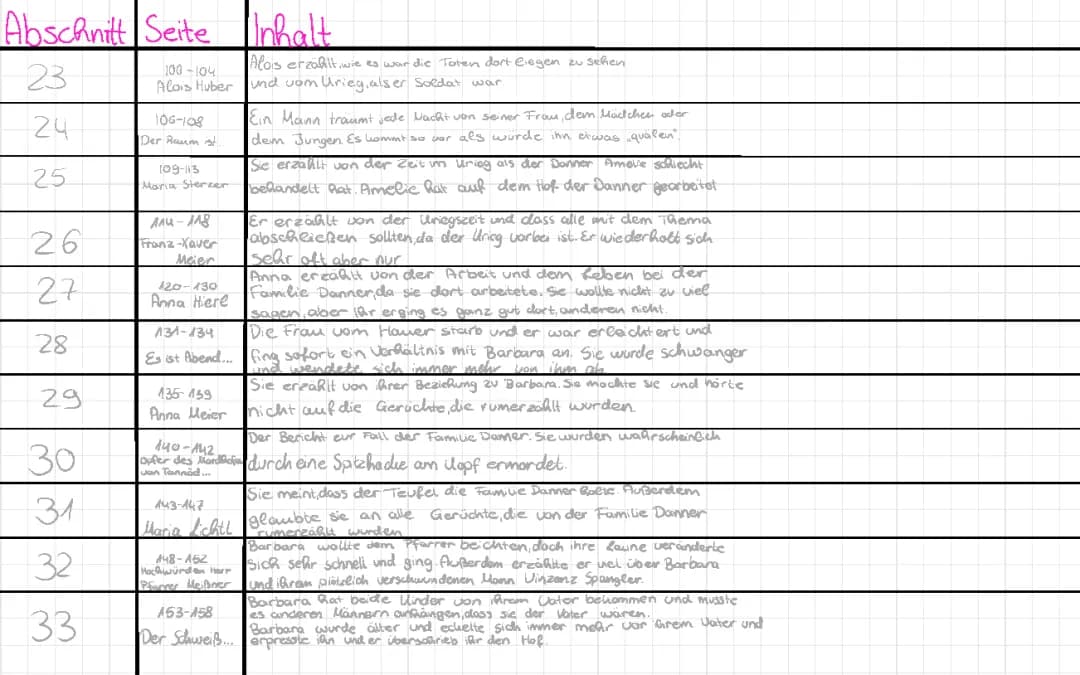 Abschnitt Seite Inhalt
23
100-104
Alois Huber
Alois erzählt, wie es war die Toten dort liegen zu sehen
und vom Krieg, als er Soldat war
24
106-108
Der Raum ist
Ein Mann träumt jede Nacht von seiner Frau, dem Mädchen oder
dem Jungen. Es kommt so vor als würde ihn etwas „quälen".
25
109-113
Maria
Sie erzählt von der Zeit im Krieg als der Danner Amelie schlecht
behandelt hat. Amelie hat auf dem Hof der Danner gearbeitet
26
114-118
Franz-Xaver
Meier
Er erzählt von der Kriegszeit und dass alle mit dem Thema
abschließen sollten, da der Krieg vorbei ist. Er wiederholt sich
sehr oft aber nur
27
120-130
Anna Hierl
Anna erzählt von der Arbeit und dem Leben bei der
Familie Danner, da sie dort arbeitete. Sie wollte nicht zu viel
sagen, aber ihr erging es ganz gut dort, anderen nicht.
28
131-134
Es ist Abend...
Die Frau vom Hauer starb und er war erleichtert und
fing sofort ein Verhältnis mit Barbara an. Sie wurde schwanger
und wendete sich immer mehr von ihm ab
29
135-139
Anna Meier
Sie erzählt von ihrer Beziehung zu Barbara. Sie mochte sie und hörte
nicht auf die Gerüchte, die rumerzählt wurden.
30
140-142
Opfer des
von Tannöd...
Der Bericht zur Fall der Familie Danner. Sie wurden wahrscheinlich
durch eine Spitzhacke am Kopf ermordet.
31
143-147
Maria Lichtl
Sie meint, dass der Teufel die Familie Danner holte. Außerdem
glaubte sie an alle Gerüchte, die von der Familie Danner
rumerzählt wurden
32
148-152
Hochwürden Herr
Pfarrer Meißner
Barbara wollte dem Pfarrer beichten, doch ihre Laune veränderte
sich sehr schnell und ging. Außerdem erzählte er viel über Barbara
und ihrem plötzlich verschwundenen Mann Vinzenz Spangler.
33
153-158
Der Schweiß...
Barbara hat beide Kinder von ihrem Vater bekommen und musste
es anderen Männern anhängen, dass sie der Vater wären.
Barbara wurde älter und eckelte sich immer mehr vor ihrem Vater und
erpresste ihn und er überschrieb ihr den Hof.